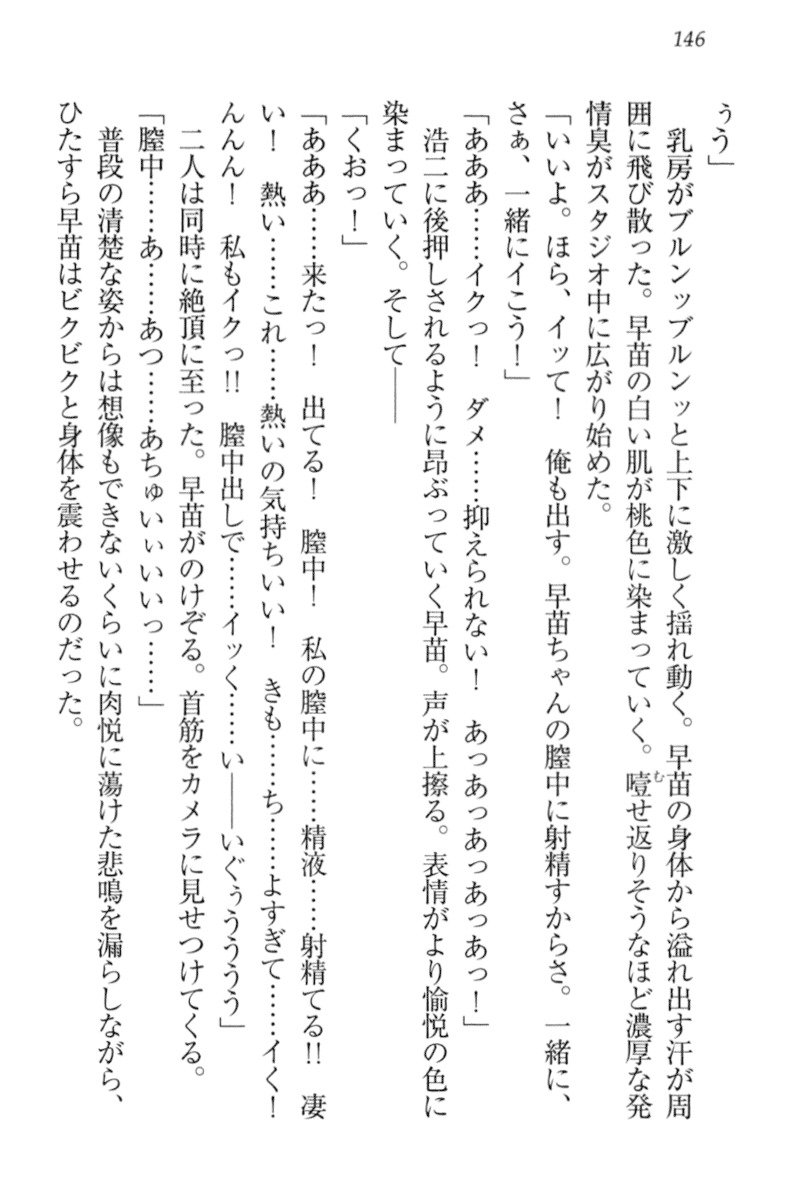 146
ぅう」
乳房がブルンッブルンッと上下に激しく揺れ動く。早苗の身体から溢れ出す汗が周
囲に飛び散った。早苗の白い肌が桃色に染まっていく。噎せ返りそうなほど濃厚な発
情臭がスタジオ中に広がり始めた。
「いいよ。ほら、イッて！　俺も出す。早苗ちゃんの膣中に射精すからさ。一緒に、
さぁ、一緒にイこう！」
「あああ……イクっ！　ダメ……抑えられない！　あっあっあっあっあっ！」
浩二に後押しされるように昂ぶっていく早苗。声が上擦る。表情がより愉悦の色に
染まっていく。そして――
「くおっ！」
「あああ……来たっ！　出てる！　膣中！　私の膣中に……精液……射精てる!!　凄
い！　熱い……これ……熱いの気持ちいい！　きも……ち……よすぎて……イく！
んんん！　私もイクっ!!　膣中出しで……イッく……い――いぐぅうううう」
二人は同時に絶頂に至った。早苗がのけぞる。首筋をカメラに見せつけてくる。
「膣中……あ……あつ……あちゅいぃいいっ……」
普段の清楚な姿からは想像もできないくらいに肉悦に蕩けた悲鳴を漏らしながら、
ひたすら早苗はビクビクと身体を震わせるのだった。